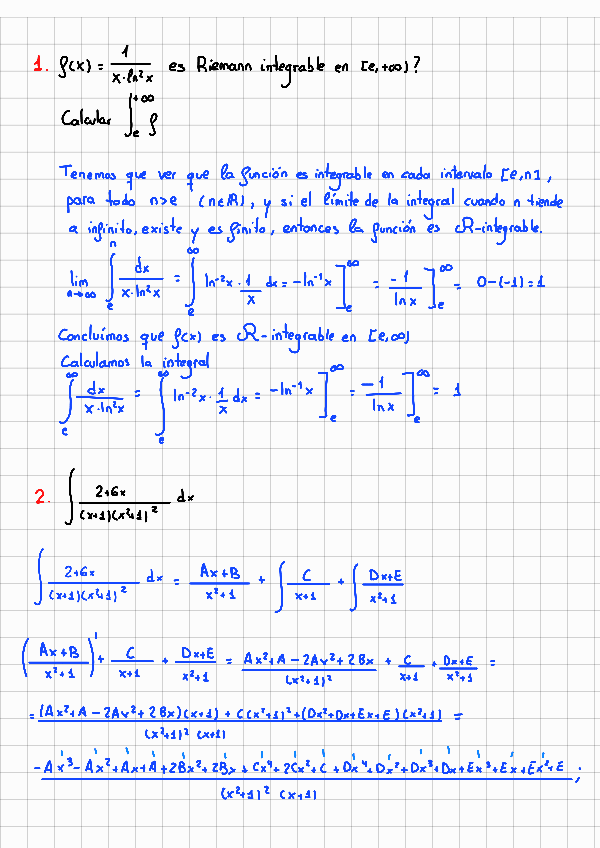 1. f(x) = 1/(x·ln²x) es Riemann integrable en [e,+∞)?
Calcular ∫_e^{+∞} f
Tenemos que ver que la función es integrable en cada intervalo [e,n],
para todo n>e (n∈ℝ), y si el límite de la integral cuando n tiende
a infinito, existe y es finito, entonces la función es R-integrable.
lim_{n→∞} ∫_e^n dx/(x·ln²x) = ∫_e^∞ ln⁻²x · 1/x dx = -ln⁻¹x]_e^∞ = -1/ln x]_e^∞ = 0-(-1)=1
Concluímos que f(x) es R-integrable en [e,∞)
Calculamos la integral
∫_e^∞ dx/(x·ln²x) = ∫_e^∞ ln⁻²x · 1/x dx = -ln⁻¹x]_e^∞ = -1/ln x]_e^∞ = 1
2. ∫ (2+6x)/((x+1)(x²+1)²) dx
∫ (2+6x)/((x+1)(x²+1)²) dx = (Ax+B)/(x²+1) + ∫ C/(x+1) + ∫ (Dx+E)/(x²+1)
((Ax+B)/(x²+1))' + C/(x+1) + (Dx+E)/(x²+1) = (Ax²+A-2Ax²+2Bx)/(x²+1)² + C/(x+1) + (Dx+E)/(x²+1) =
= ((Ax²+A-2Ax²+2Bx)(x+1) + C(x²+1)² + (Dx²+Dx+Ex+E)(x²+1))/((x²+1)²(x+1)) =
(-Ax³-Ax²+Ax+A+2Bx²+2Bx+Cx⁴+2Cx²+C+Dx⁴+Dx²+Dx³+Dx+Ex³+Ex+Ex²+E)/((x²+1)²(x+1));